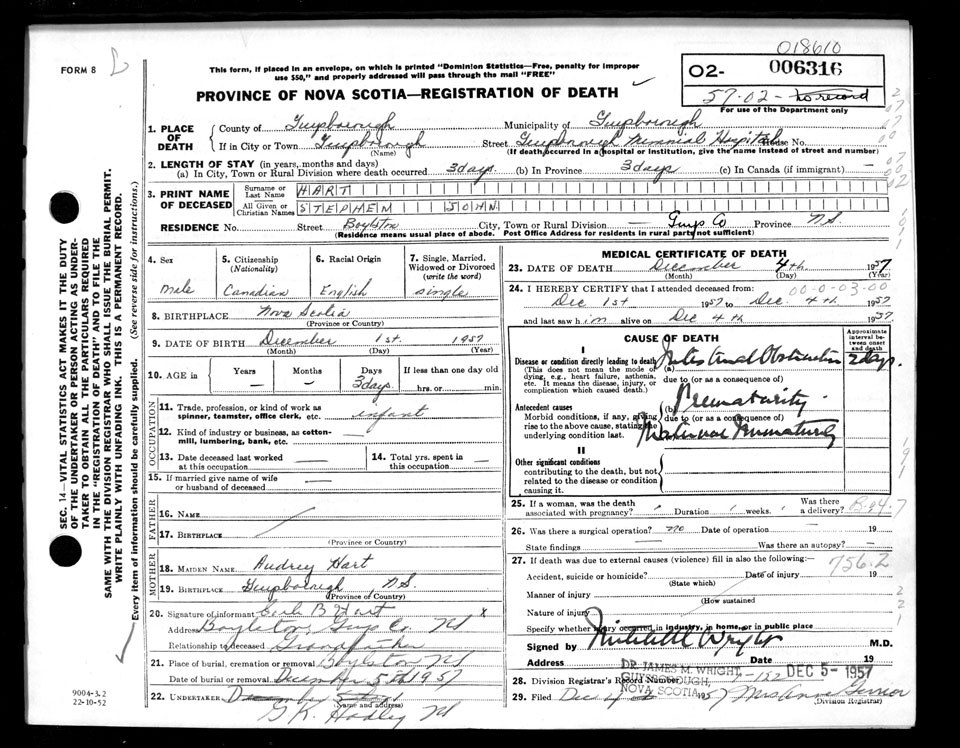 018610
FORM 8
This form, if placed in an envelope, on which is printed "Dominion Statistics—Free, penalty for improper
use $50," and properly addressed will pass through the mail "FREE"
O2- 006316
57-02- no record
For use of the Department only
PROVINCE OF NOVA SCOTIA—REGISTRATION OF DEATH
1. PLACE OF DEATH County of Guysborough Municipality of Guysborough
If in City or Town Guysborough Street Guysborough Memorial Hospital House No.
(Name) (If death occurred in a hospital or institution, give the name instead of street and number)
2. LENGTH OF STAY (in years, months and days)
(a) In City, Town or Rural Division where death occurred 3 days (b) In Province 3 days (c) In Canada (if immigrant) —
3. PRINT NAME OF DECEASED Surname or Last Name HART
All Given or Christian Names STEPHEM JOHN
RESIDENCE No. Street Boylston City, Town or Rural Division — Guys Co Province N.S.
(Residence means usual place of abode. Post Office Address for residents in rural parts not sufficient)
4. Sex Male
5. Citizenship (Nationality) Canadian
6. Racial Origin English
7. Single, Married, Widowed or Divorced (write the word) single
8. BIRTHPLACE Nova Scotia
(Province or Country)
9. DATE OF BIRTH December 1st. 1957
(Month) (Day) (Year)
10. AGE in Years — Months — Days 3 days If less than one day old hrs. or min.
OCCUPATION
11. Trade, profession, or kind of work as spinner, teamster, office clerk, etc. infant
12. Kind of industry or business, as cotton-mill, lumbering, bank, etc. —
13. Date deceased last worked at this occupation —
14. Total yrs. spent in this occupation —
15. If married give name of wife or husband of deceased —
FATHER
16. NAME
17. BIRTHPLACE
(Province or Country)
MOTHER
18. MAIDEN NAME Audrey Hart
19. BIRTHPLACE Guysborough N.S.
(Province of Country)
20. Signature of informant B Hart x
Address Boylston, Guys Co. NS
Relationship to deceased Grandfather
21. Place of burial, cremation or removal Boylston NS
Date of burial or removal December 5th 1957
22. UNDERTAKER
(Name and address)
G. K. Hadley NS
9004-3.2
22-10-52
MEDICAL CERTIFICATE OF DEATH
23. DATE OF DEATH December 4th 1957
(Month) (Day) (Year)
24. I HEREBY CERTIFY that I attended deceased from: 00-0-03-00
Dec 1st 1957 to Dec. 4th 1957
and last saw him alive on Dec 4th 1957.
CAUSE OF DEATH
Approximate interval between onset and death
I
Disease or condition directly leading to death (a) Intestinal Obstruction 2 days.
(This does not mean the mode of dying, e.g., heart failure, asthenia, etc. It means the disease, injury, or complication which caused death.)
due to (or as a consequence of)
(b) Prematurity
Antecedent causes
Morbid conditions, if any, giving rise to the above cause, stating the underlying condition last.
due to (or as a consequence of)
Maternal Immaturity
II
Other significant conditions
contributing to the death, but not related to the disease or condition causing it.
25. If a woman, was the death associated with pregnancy? Duration weeks. Was there a delivery?
26. Was there a surgical operation? no Date of operation — 19
State findings — Was there an autopsy? —
27. If death was due to external causes (violence) fill in also the following:— 756.2
Accident, suicide or homicide? Date of injury 19
(State which)
Manner of injury
(How sustained
Nature of injury
Specify whether injury occurred in industry, in home, or in public place
Signed by Wright M.D.
Address Date 19
DR. JAMES M. WRIGHT
GUYSBOROUGH,
NOVA SCOTIA
DEC 5- 1957
28. Division Registrar's Record Number
29. Filed Dec 1957 Mrs
(Division Registrar)
SEC. 14—VITAL STATISTICS ACT MAKES IT THE DUTY
OF THE UNDERTAKER OR PERSON ACTING AS UNDER-
TAKER TO OBTAIN ALL THE PARTICULARS REQUIRED
IN THE "REGISTRATION OF DEATH" AND TO FILE THE
SAME WITH THE DIVISION REGISTRAR WHO SHALL ISSUE THE BURIAL PERMIT.
WRITE PLAINLY WITH UNFADING INK. THIS IS A PERMANENT RECORD.
Every item of information should be carefully supplied. (See reverse side for instructions.)